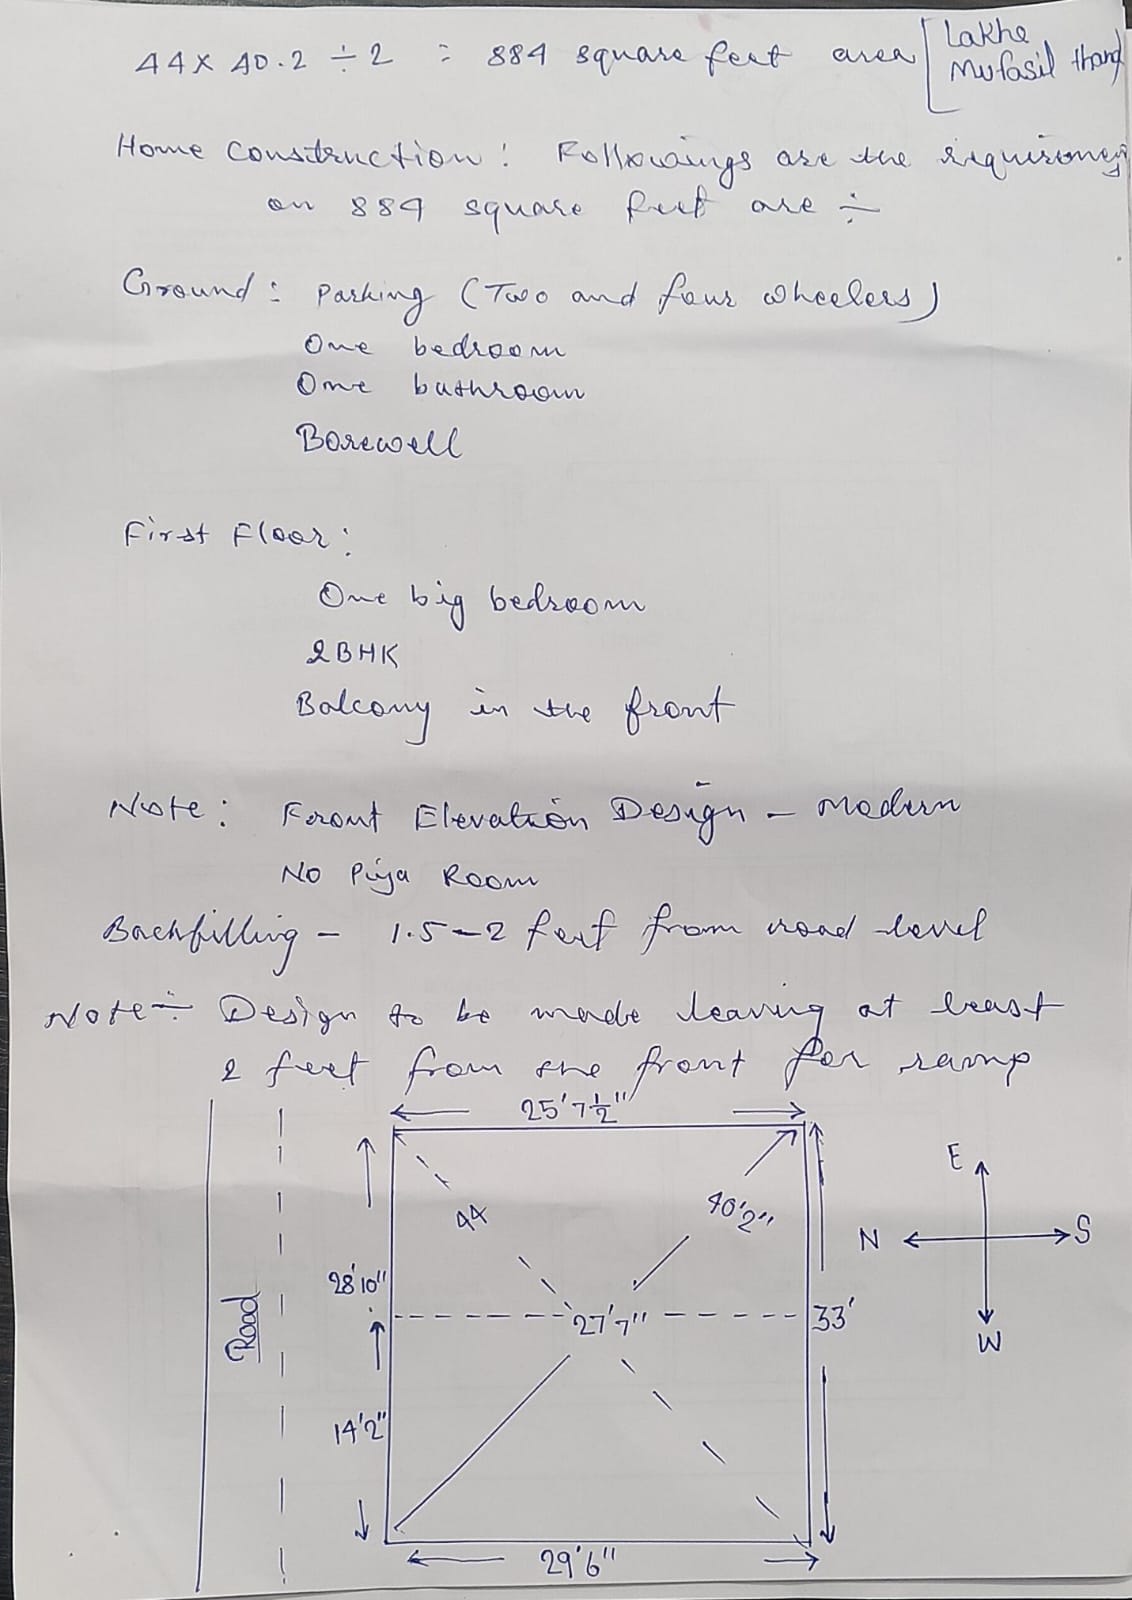 44 x 40.2 ÷ 2 = 884 square feet area [Lakhe
Mufasil thana
Home Construction : Followings are the requirements
on 884 square feet are ÷
Ground : Parking (Two and four wheelers)
One bedroom
One bathroom
Borewell
First Floor :
One big bedroom
2BHK
Balcony in the front
Note : Front Elevation Design - Modern
No Puja Room
Backfilling - 1.5-2 feet from road level
Note ÷ Design to be made leaving at least
2 feet from the front for ramp
25'7½"
E
44
40'2"
N
S
28'10"
Road
27'7"
33'
W
14'2"
29'6"